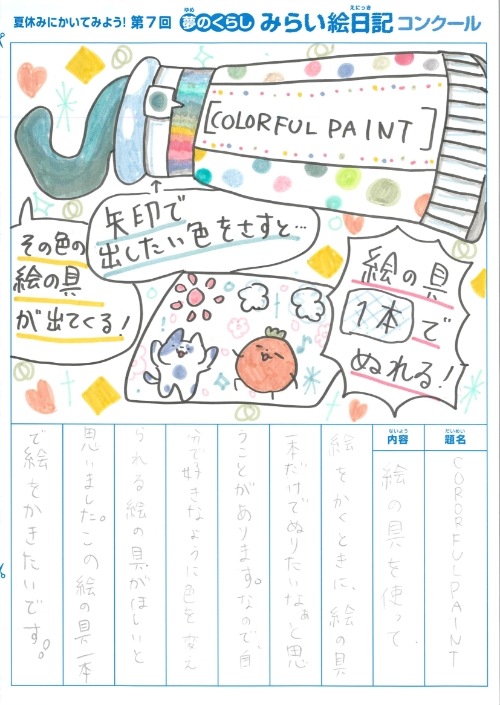 夏休みにかいてみよう！ 第７回 夢のくらし みらい絵日記 コンクール
ゆめ
えにっき
[COLORFUL PAINT]
矢印で
出したい色をさすと…
その色の
絵の具
が出てくる！
絵の具
1本で
ぬれる！
だいめい
題名
CORORFULPAINT
ないよう
内容
絵の具を使って、
絵をかくときに、絵の具
一本だけでぬりたいなぁと思
うことがあります。なので、自
分で好きなように色を変え
られる絵の具がほしいと
思いました。この絵の具一本
で絵をかきたいです。